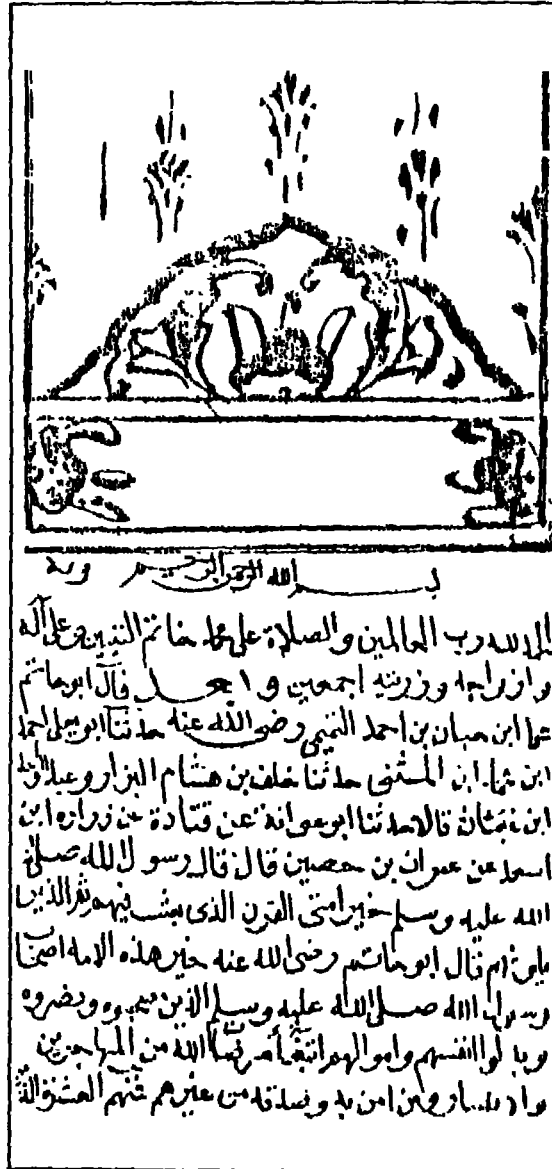 بسم الله الرحمن الرحيم وبه
الحمد لله رب العالمين والصلاة على محمد خاتم النبيين وعلى آله
وازواجه وزريته اجمعين و بعد قال ابو حاتم
محمد ابن حبان بن احمد التميمي رضى الله عنه حدثنا ابو يعلى احمد
ابن المثنى حدثنا خلف بن هشام البزار وعبد الواحد
ابن غياث قالا حدثنا ابو عوانة عن قتادة عن زراره ابن
عن عمران بن حصين قال قال رسول الله صلى
الله عليه وسلم خير امتى القرن الذى بعثت فيهم ثم الذين
قال ابو حاتم رضى الله عنه خير هذه الامه اصحاب
رسول الله صلى الله عليه وسلم الذين صحبوه ونصروه
وبذلوا انفسهم واموالهم ابتغأ مرضات الله من المهاجرين
والانصار ومن امن به وصدقه من غيرهم منهم العشرة